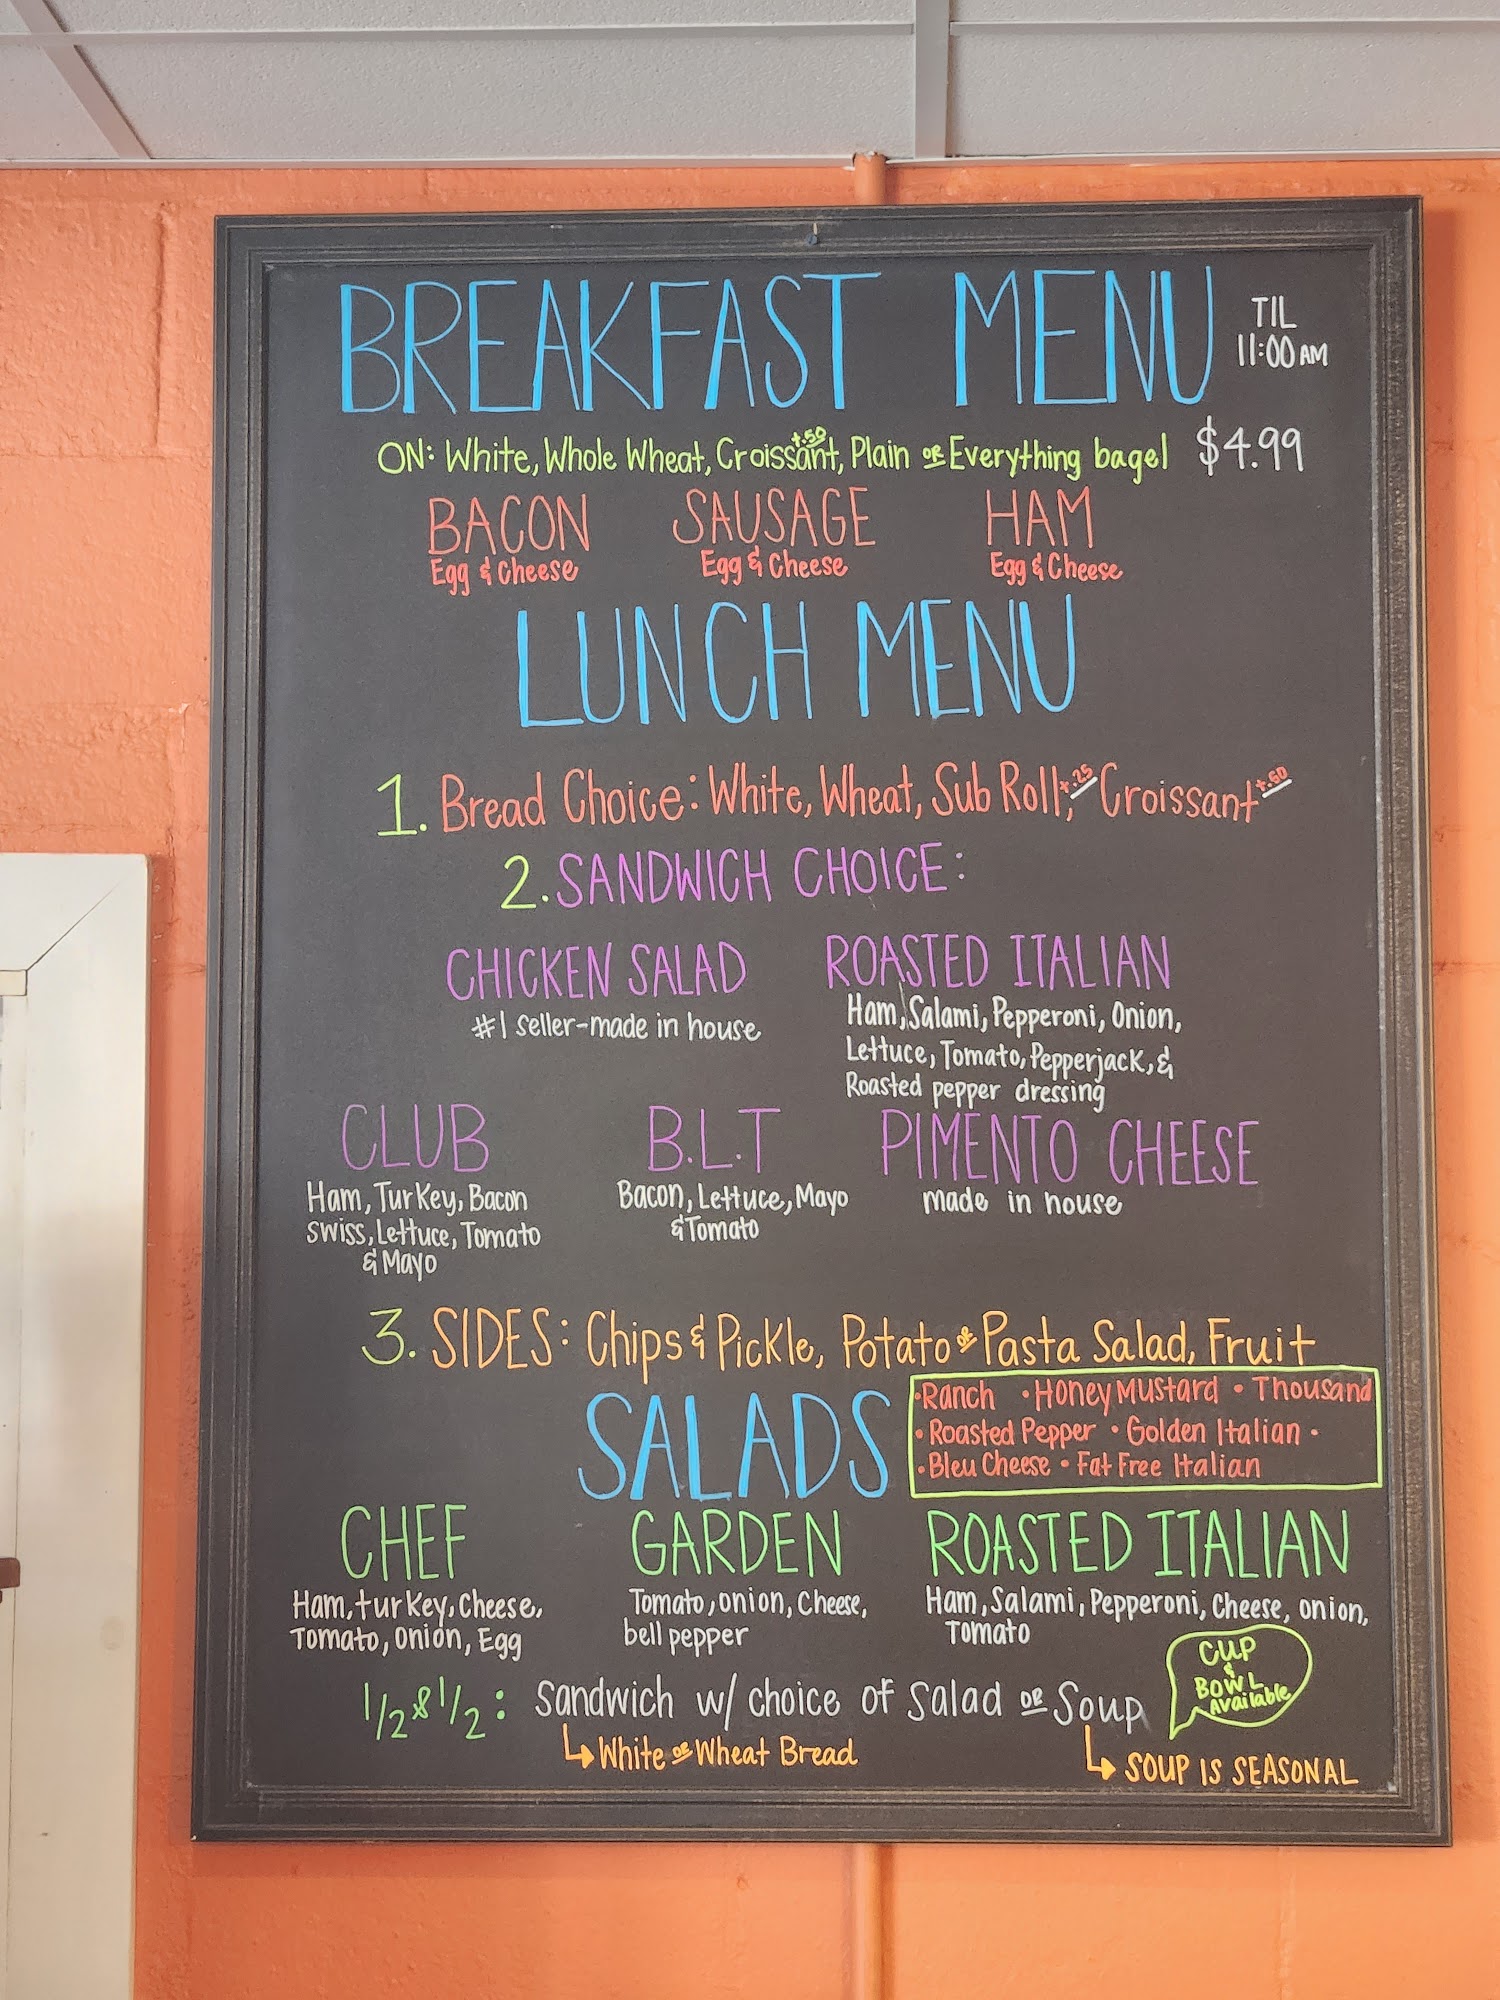 BREAKFAST MENU TIL 11:00 AM
ON: White, Whole Wheat, Croissant +.50, Plain or Everything bagel $4.99
BACON SAUSAGE HAM
Egg & Cheese Egg & Cheese Egg & Cheese
LUNCH MENU
1. Bread Choice: White, Wheat, Sub Roll +.25, Croissant +.60
2. SANDWICH CHOICE:
CHICKEN SALAD
#1 seller-made in house
ROASTED ITALIAN
Ham, Salami, Pepperoni, Onion,
Lettuce, Tomato, Pepperjack, &
Roasted pepper dressing
CLUB
Ham, Turkey, Bacon
Swiss, Lettuce, Tomato
& Mayo
B.L.T
Bacon, Lettuce, Mayo
& Tomato
PIMENTO CHEESE
made in house
3. SIDES: Chips & Pickle, Potato or Pasta Salad, Fruit
SALADS
• Ranch • Honey Mustard • Thousand
• Roasted Pepper • Golden Italian •
• Bleu Cheese • Fat Free Italian
CHEF
Ham, turkey, Cheese,
Tomato, Onion, Egg
GARDEN
Tomato, onion, Cheese,
bell pepper
ROASTED ITALIAN
Ham, Salami, Pepperoni, Cheese, onion,
Tomato
1/2 & 1/2: Sandwich w/ choice of Salad or Soup
CUP
&
BOWL
Available
White or Wheat Bread
SOUP IS SEASONAL